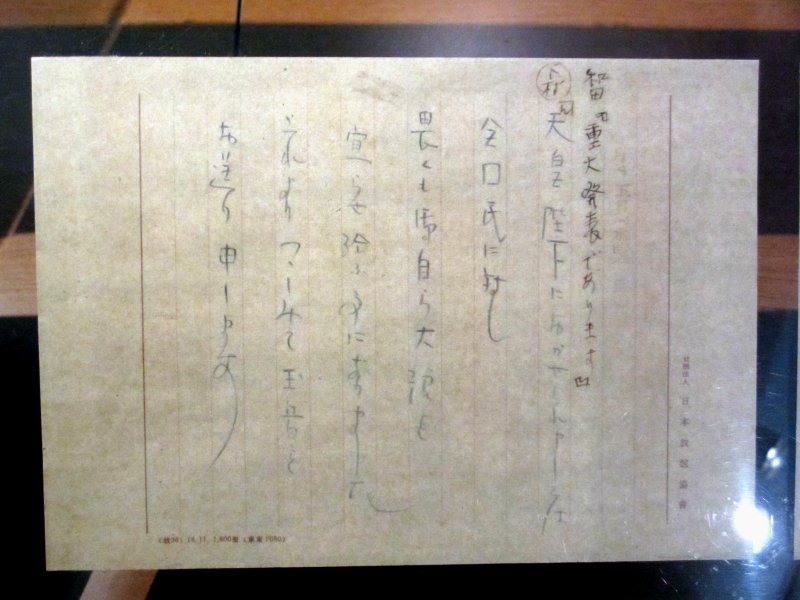 智田 重大発表であります
下村 天皇陛下におかせられまして
全国民に対し
畏くも御自ら大詔を
宣らせ給ふ事になりました
これよりつゝしみて玉音を
お送り申します
社団法人 日本放送協会
18.11. 1,800冊